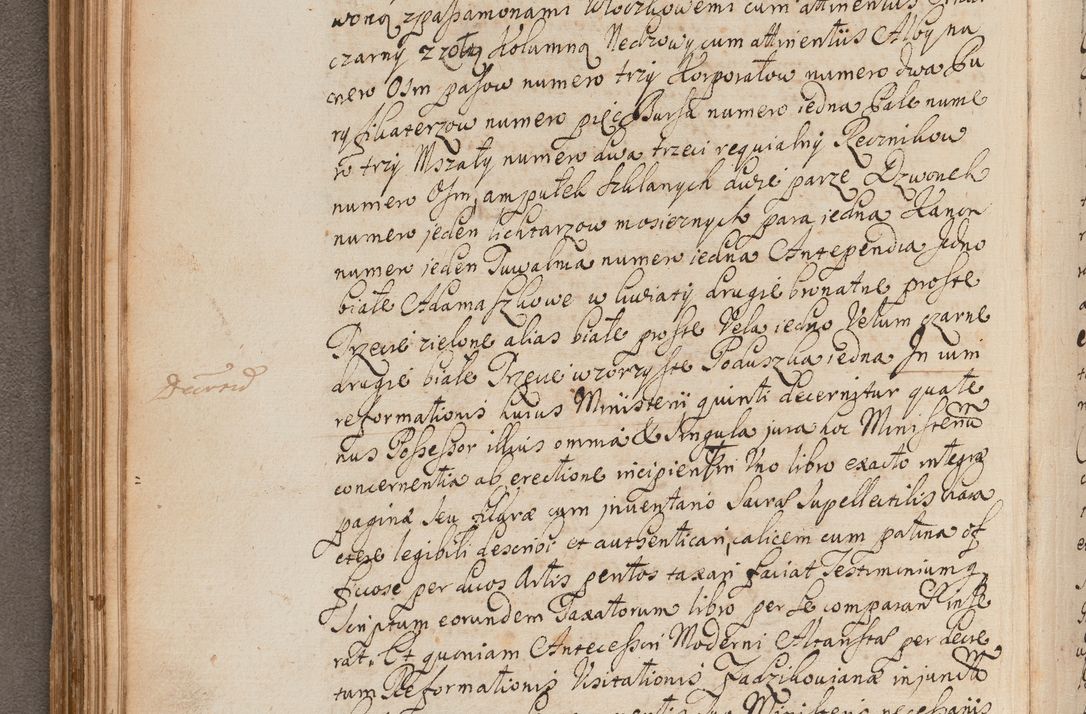 woną zpassamonami Włoczkowemi cum attinentiis
czarny z żołtą Kolumną Nedzowy cum attinentiis Alby na
mero Osm pasow numero trzy Korporałow numero dwa Pu
ryfikaterzow numero pięc Bursa numero iedna Palle nume
ro trzy Mszały numero dwa trzeci requialny Ręcznikow
numero Osm, ampułek szklanych dwie parze Dzwonek
numero jeden lichtarzow mosięznych para iedna Kanon
numero jeden Tuwalnia numero iedna Antependia Jedno
białe Adamaszkowe w kwiaty drugie brunatne proste
Trzecie zielone alias białe proste Vela iedno Velum czarne
drugie białe Trzecie wzorzyste Poduszka iedna In vim
Decretũ
reformationis huius Ministerii quinti decernitur quate
nus Possessor illius omnia & singula jura hoc Ministeriũ
concernentia ab erectione incipien in Vno libro exacto integræ
paginæ seu filiyræ cum jnventario Sacræ Supellectilis chara
ctere legibili describi et authenticari, calicem cum patina of
ficiose per duos Artis peritos taxari faciat Testimoniumq
scriptum eorundem Taxatorum libro per se comparan inse
rat. Et quoniam Antecessori Moderni Altaristæ per decre
tum Reformationis Visitationis Zadzikovianæ injunctũ
Ministerii necessariis